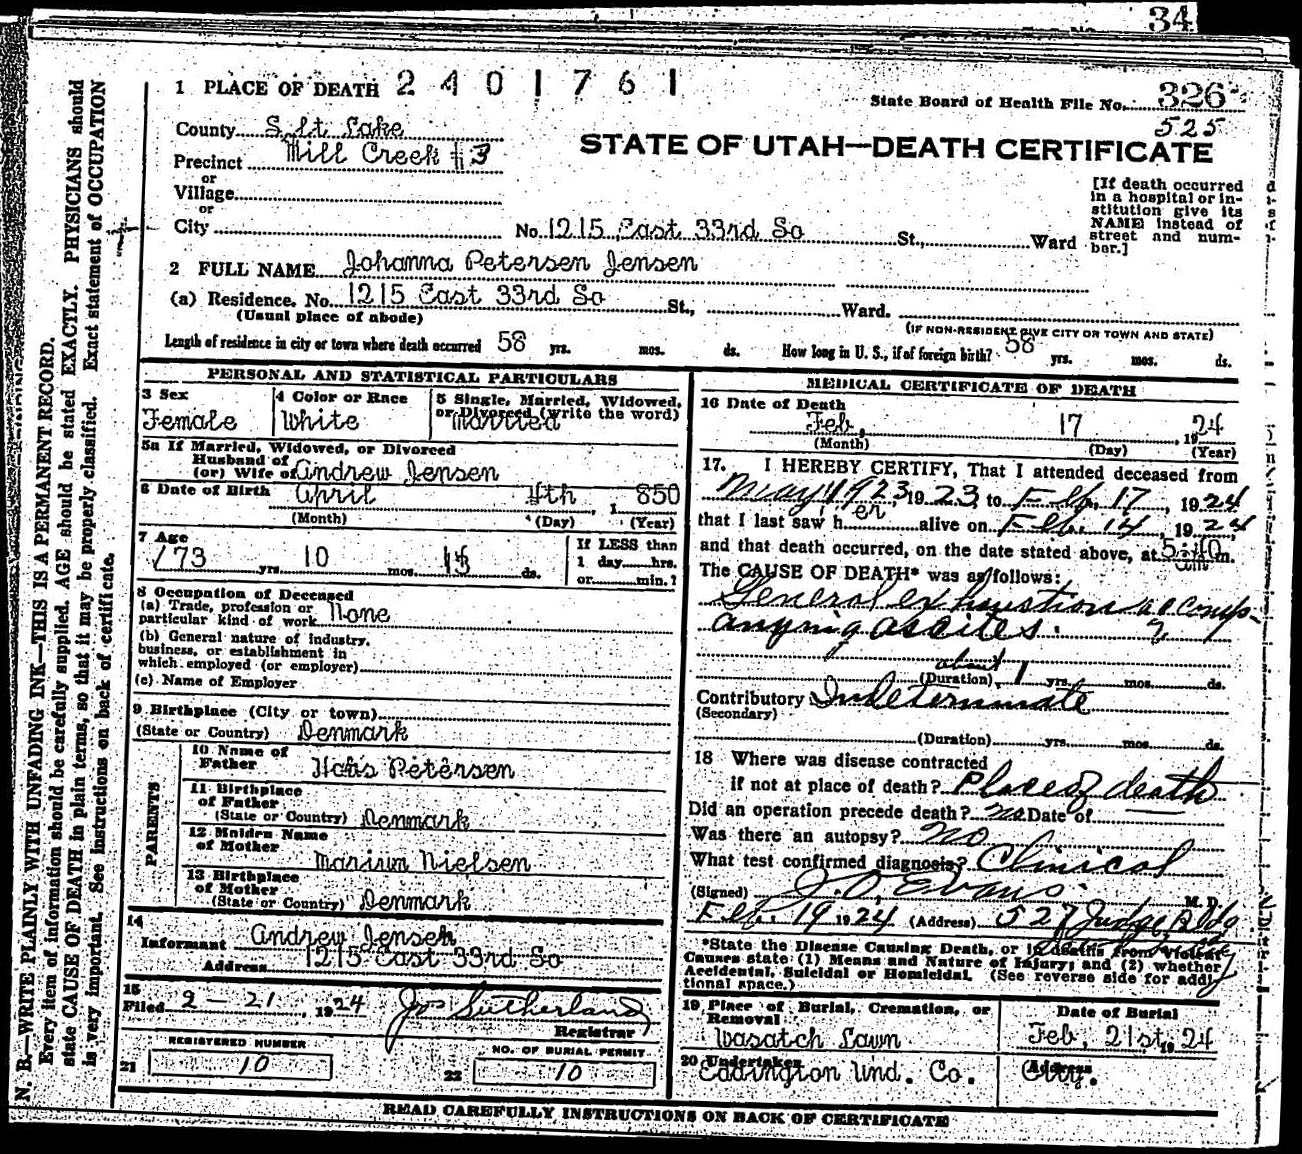 34
1 PLACE OF DEATH 2401761
State Board of Health File No. 326
525
County Salt Lake
STATE OF UTAH—DEATH CERTIFICATE
Precinct Mill Creek #3
or
Village
or
City No. 1215 East 33rd So St., Ward
[If death occurred
in a hospital or in-
stitution give its
NAME instead of
street and num-
ber.]
2 FULL NAME Johanna Petersen Jensen
(a) Residence. No. 1215 East 33rd So St., Ward.
(Usual place of abode)
(IF NON-RESIDENT GIVE CITY OR TOWN AND STATE)
Length of residence in city or town where death occurred 58 yrs. mos. ds. How long in U. S., if of foreign birth? 58 yrs. mos. ds.
PERSONAL AND STATISTICAL PARTICULARS
3 Sex
Female
4 Color or Race
White
5 Single, Married, Widowed,
or Divorced (write the word)
Married
5a If Married, Widowed, or Divorced
Husband of
(or) Wife of Andrew Jensen
6 Date of Birth April 4th, 1850
(Month) (Day) (Year)
7 Age
73 yrs. 10 mos. 13 ds.
If LESS than
1 day hrs.
or min.?
8 Occupation of Deceased
(a) Trade, profession or
particular kind of work None
(b) General nature of industry,
business, or establishment in
which employed (or employer)
(c) Name of Employer
9 Birthplace (City or town)
(State or Country) Denmark
PARENTS
10 Name of
Father Hans Petersen
11 Birthplace
of Father
(State or Country) Denmark
12 Maiden Name
of Mother
Nielsen
13 Birthplace
of Mother
(State or Country) Denmark
14
Informant Andrew Jensen
Address 1215 East 33rd So
15
Filed 2-21, 1924 Jos Sutherland
Registrar
REGISTERED NUMBER
21 10
NO. OF BURIAL PERMIT
22 10
MEDICAL CERTIFICATE OF DEATH
16 Date of Death
Feb, 17, 1924
(Month) (Day) (Year)
17. I HEREBY CERTIFY, That I attended deceased from
May 1 1923, 1923, to Feb. 17, 1924
that I last saw her alive on Feb. 14, 1924
and that death occurred, on the date stated above, at 5:40 m.
am
The CAUSE OF DEATH* was as follows:
General exhaustion accomp-
anying ascites.
about
(Duration) 1 yrs. mos. ds.
Contributory Indeterminate
(Secondary)
(Duration) yrs. mos. ds.
18 Where was disease contracted
if not at place of death? Place of death
Did an operation precede death? no Date of
Was there an autopsy? no
What test confirmed diagnosis? Clinical
(Signed) J. O. Evans M. D.
Feb. 19 1924 (Address) 527 Judge Bldg
*State the Disease Causing Death, or in deaths from Violent
Causes state (1) Means and Nature of Injury; and (2) whether
Accidental, Suicidal or Homicidal. (See reverse side for addi-
tional space.)
19 Place of Burial, Cremation, or
Removal
Wasatch Lawn
Date of Burial
Feb, 21st, 1924
20 Undertaker
Eddington Und. Co.
Address
City.
READ CAREFULLY INSTRUCTIONS ON BACK OF CERTIFICATE
N. B.—WRITE PLAINLY WITH UNFADING INK—THIS IS A PERMANENT RECORD.
Every item of information should be carefully supplied. AGE should be stated EXACTLY. PHYSICIANS should
state CAUSE OF DEATH in plain terms, so that it may be properly classified. Exact statement of OCCUPATION
is very important. See instructions on back of certificate.